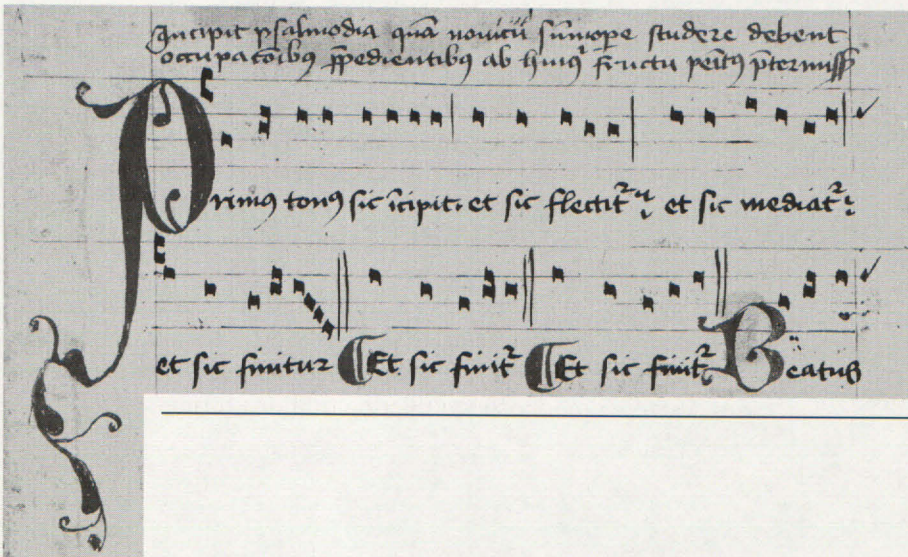 Incipit psalmodia quā novicii sūmope studere debent
occupacōibus p̄pedientibus ab huiꝰ fructu penitꝰ p̄termissꝭ
Primꝰ tonꝰ sic īcipit. et sic flectitᷣ. et sic mediatᷣ.
et sic finitur Et sic finitᷣ Et sic finitᷣ Beatus